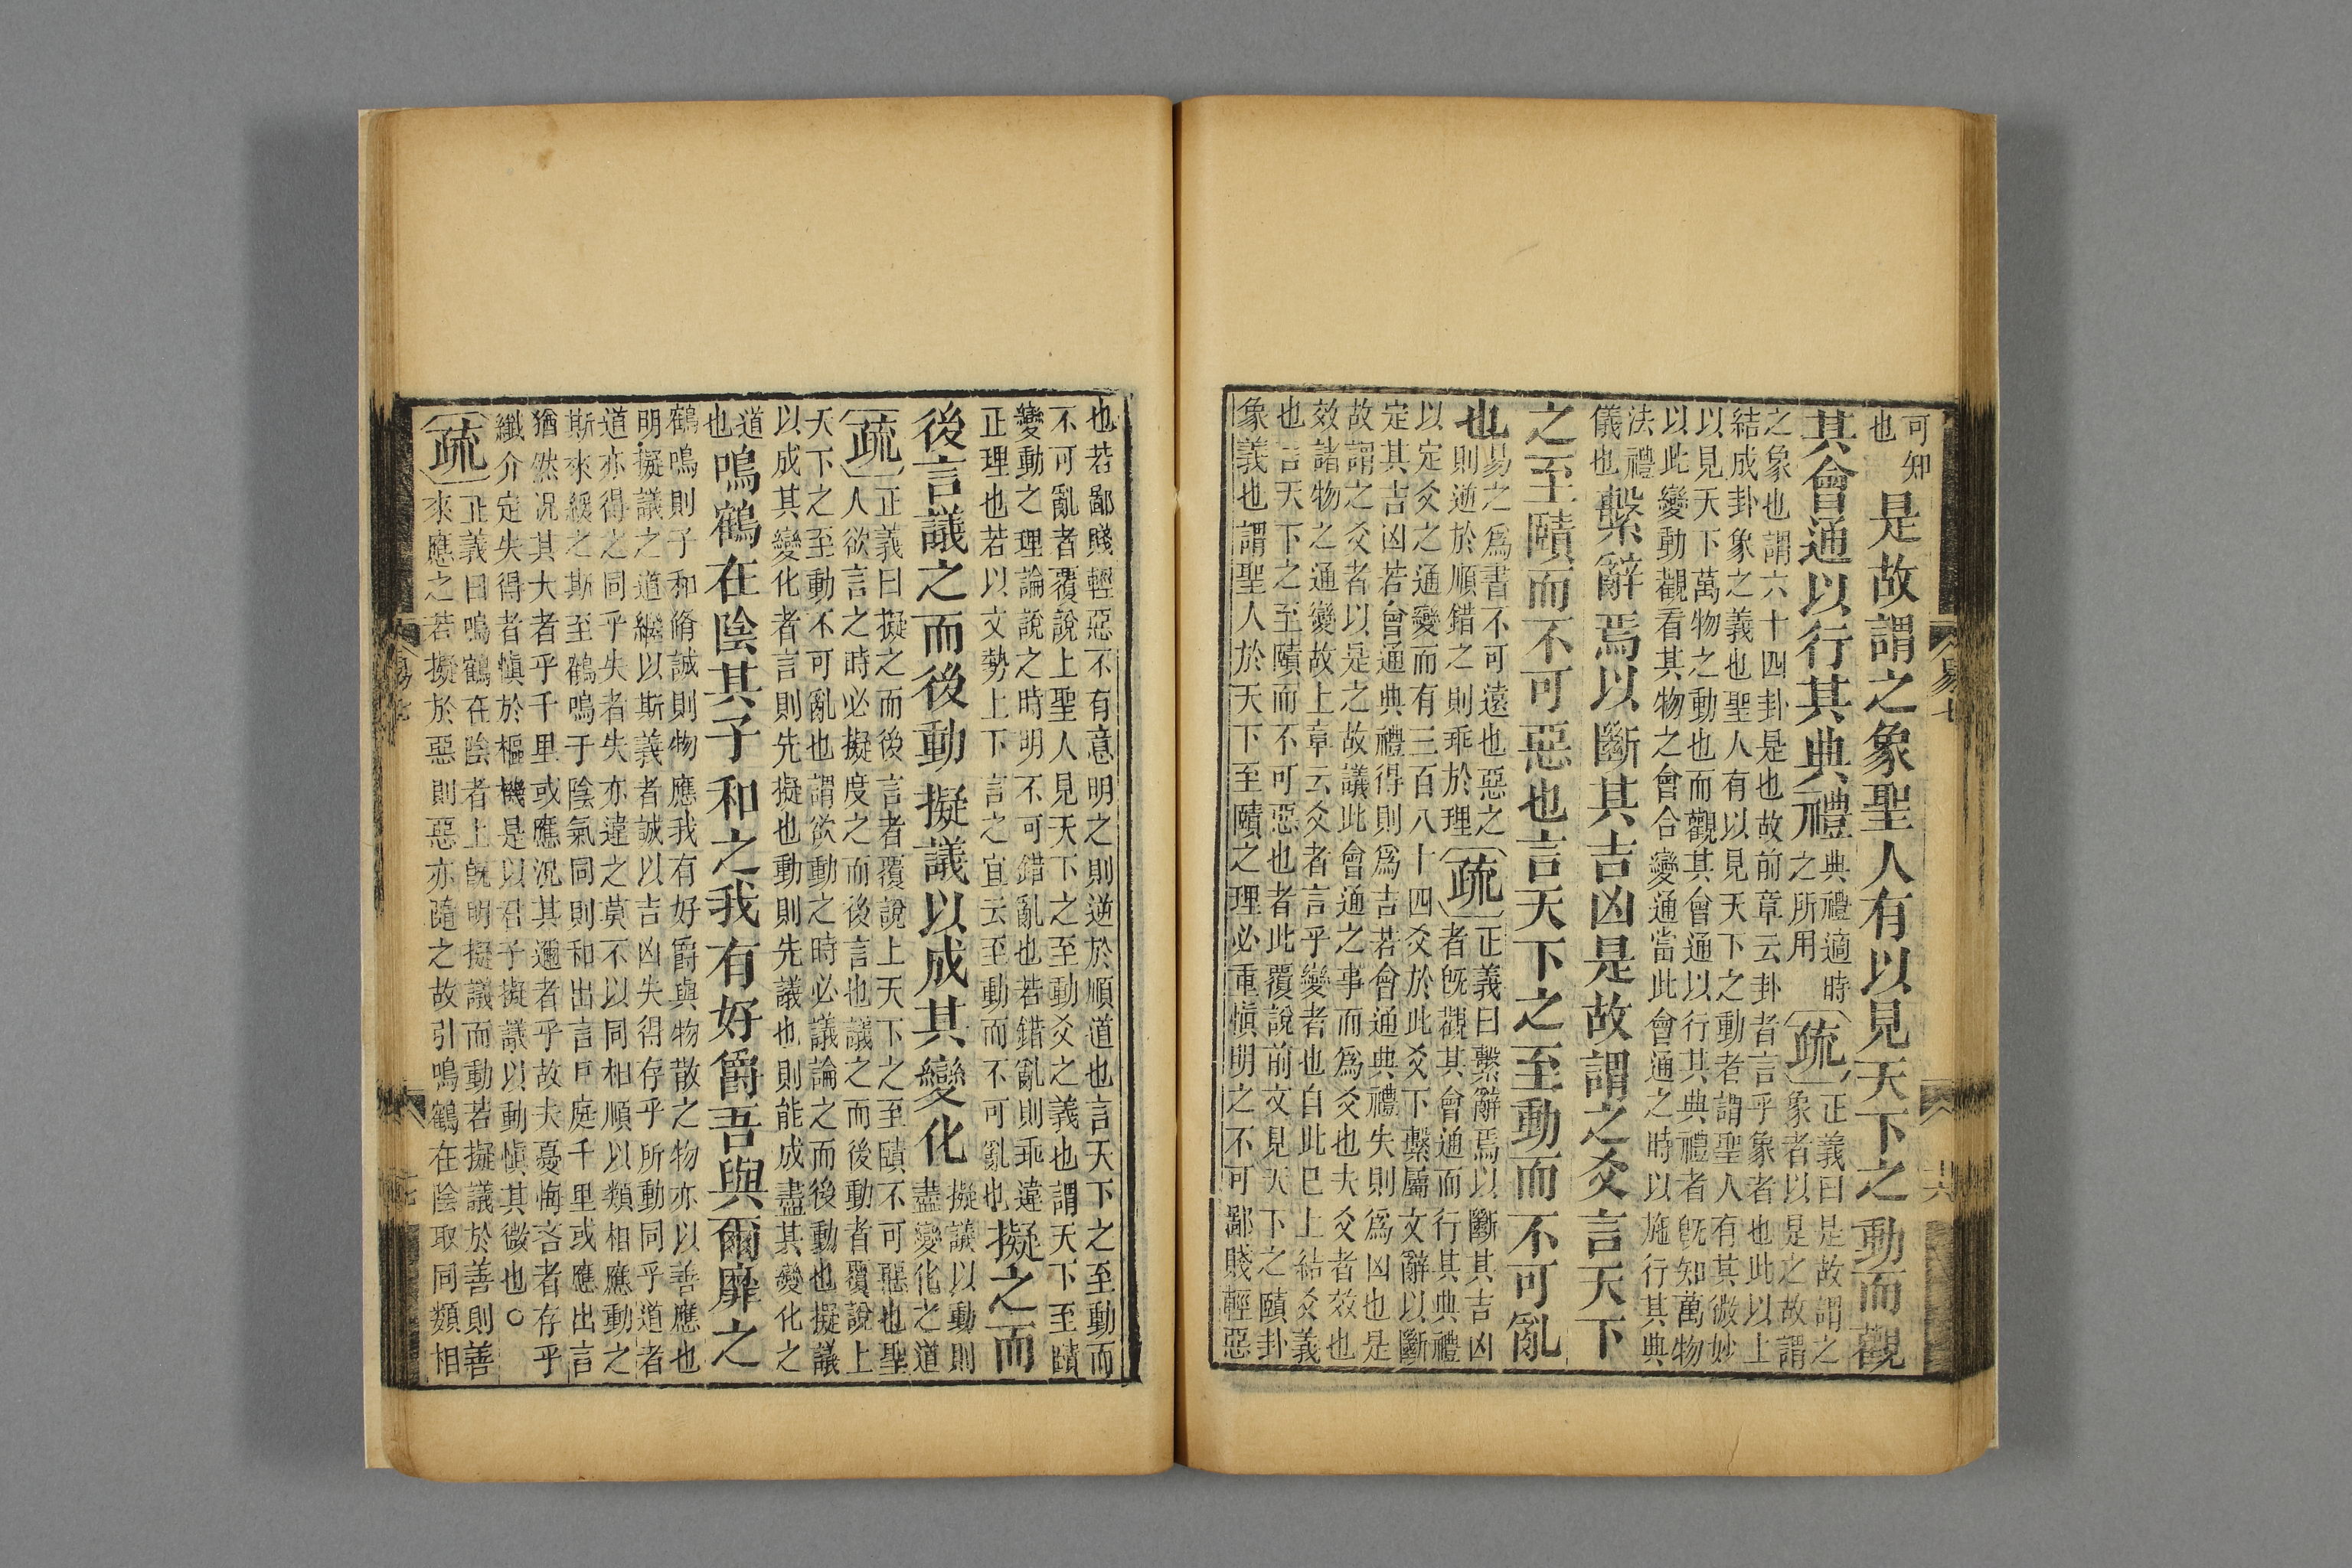 可知
也
是故謂之象聖人有以見天下之動而觀
其會通以行其典禮
典禮適時
之所用
疏
正義曰是故謂之
象者以是之故謂
之象也謂六十四卦是也故前章云卦者言乎象者也此以上
結成卦象之義也聖人有以見天下之動者謂聖人有其微妙
以見天下萬物之動也而觀其會通以行其典禮者旣知萬物
以此變動觀看其物之會合變通當此會通之時以施行其典
法禮
儀也
繫辭焉以斷其吉凶是故謂之爻言天下
之至賾而不可惡也言天下之至動而不可亂
也
易之爲書不可遠也惡之
則逆於順錯之則乖於理
疏
正義曰繫辭焉以斷其吉凶
者旣觀其會通而行其典禮
以定爻之通變而有三百八十四爻於此爻下繫屬文辭以斷
定其吉凶若會通典禮得則爲吉若會通典禮失則爲凶也是
故謂之爻者以是之故議此會通之事而爲爻也夫爻者效也
效諸物之通變故上章云爻者言乎變者也自此巳上結爻義
也言天下之至賾而不可惡也者此覆說前文見天下之賾卦
象義也謂聖人於天下至賾之理必重愼明之不可鄙賤輕惡
也若鄙賤輕惡不有意明之則逆於順道也言天下之至動而
不可亂者覆說上聖人見天下之至動爻之義也謂天下至賾
變動之理論說之時明不可錯亂也若錯亂則乖違
正理也若以文勢上下言之宜云至動而不可亂也
擬之而
後言議之而後動擬議以成其變化
擬議以動則
盡變化之道
疏
正義曰擬之而後言者覆說上天下之至賾不可惡也聖
人欲言之時必擬度之而後言也議之而後動者覆說上
天下之至動不可亂也謂欲動之時必議論之而後動也擬議
以成其變化者言則先擬也動則先議也則能成盡其變化之
道
也
鳴鶴在陰其子和之我有好爵吾與爾靡之
鶴鳴則子和脩誠則物應我有好爵與物散之物亦以善應也
明擬議之道繼以斯義者誠以吉凶失得存乎所動同乎道者
道亦得之同乎失者失亦違之莫不以同相順以類相應動之
斯來綏之斯至鶴鳴于陰氣同則和出言戶庭千里或應出言
猶然況其大者乎千里或應況其邇者乎故夫憂悔吝者存乎
纖介定失得者愼於樞機是以君子擬議以動愼其微也○
疏
正義曰鳴鶴在陰者上旣明擬議而動若擬議於善則善
來應之若擬於惡則惡亦隨之故引鳴鶴在陰取同類相